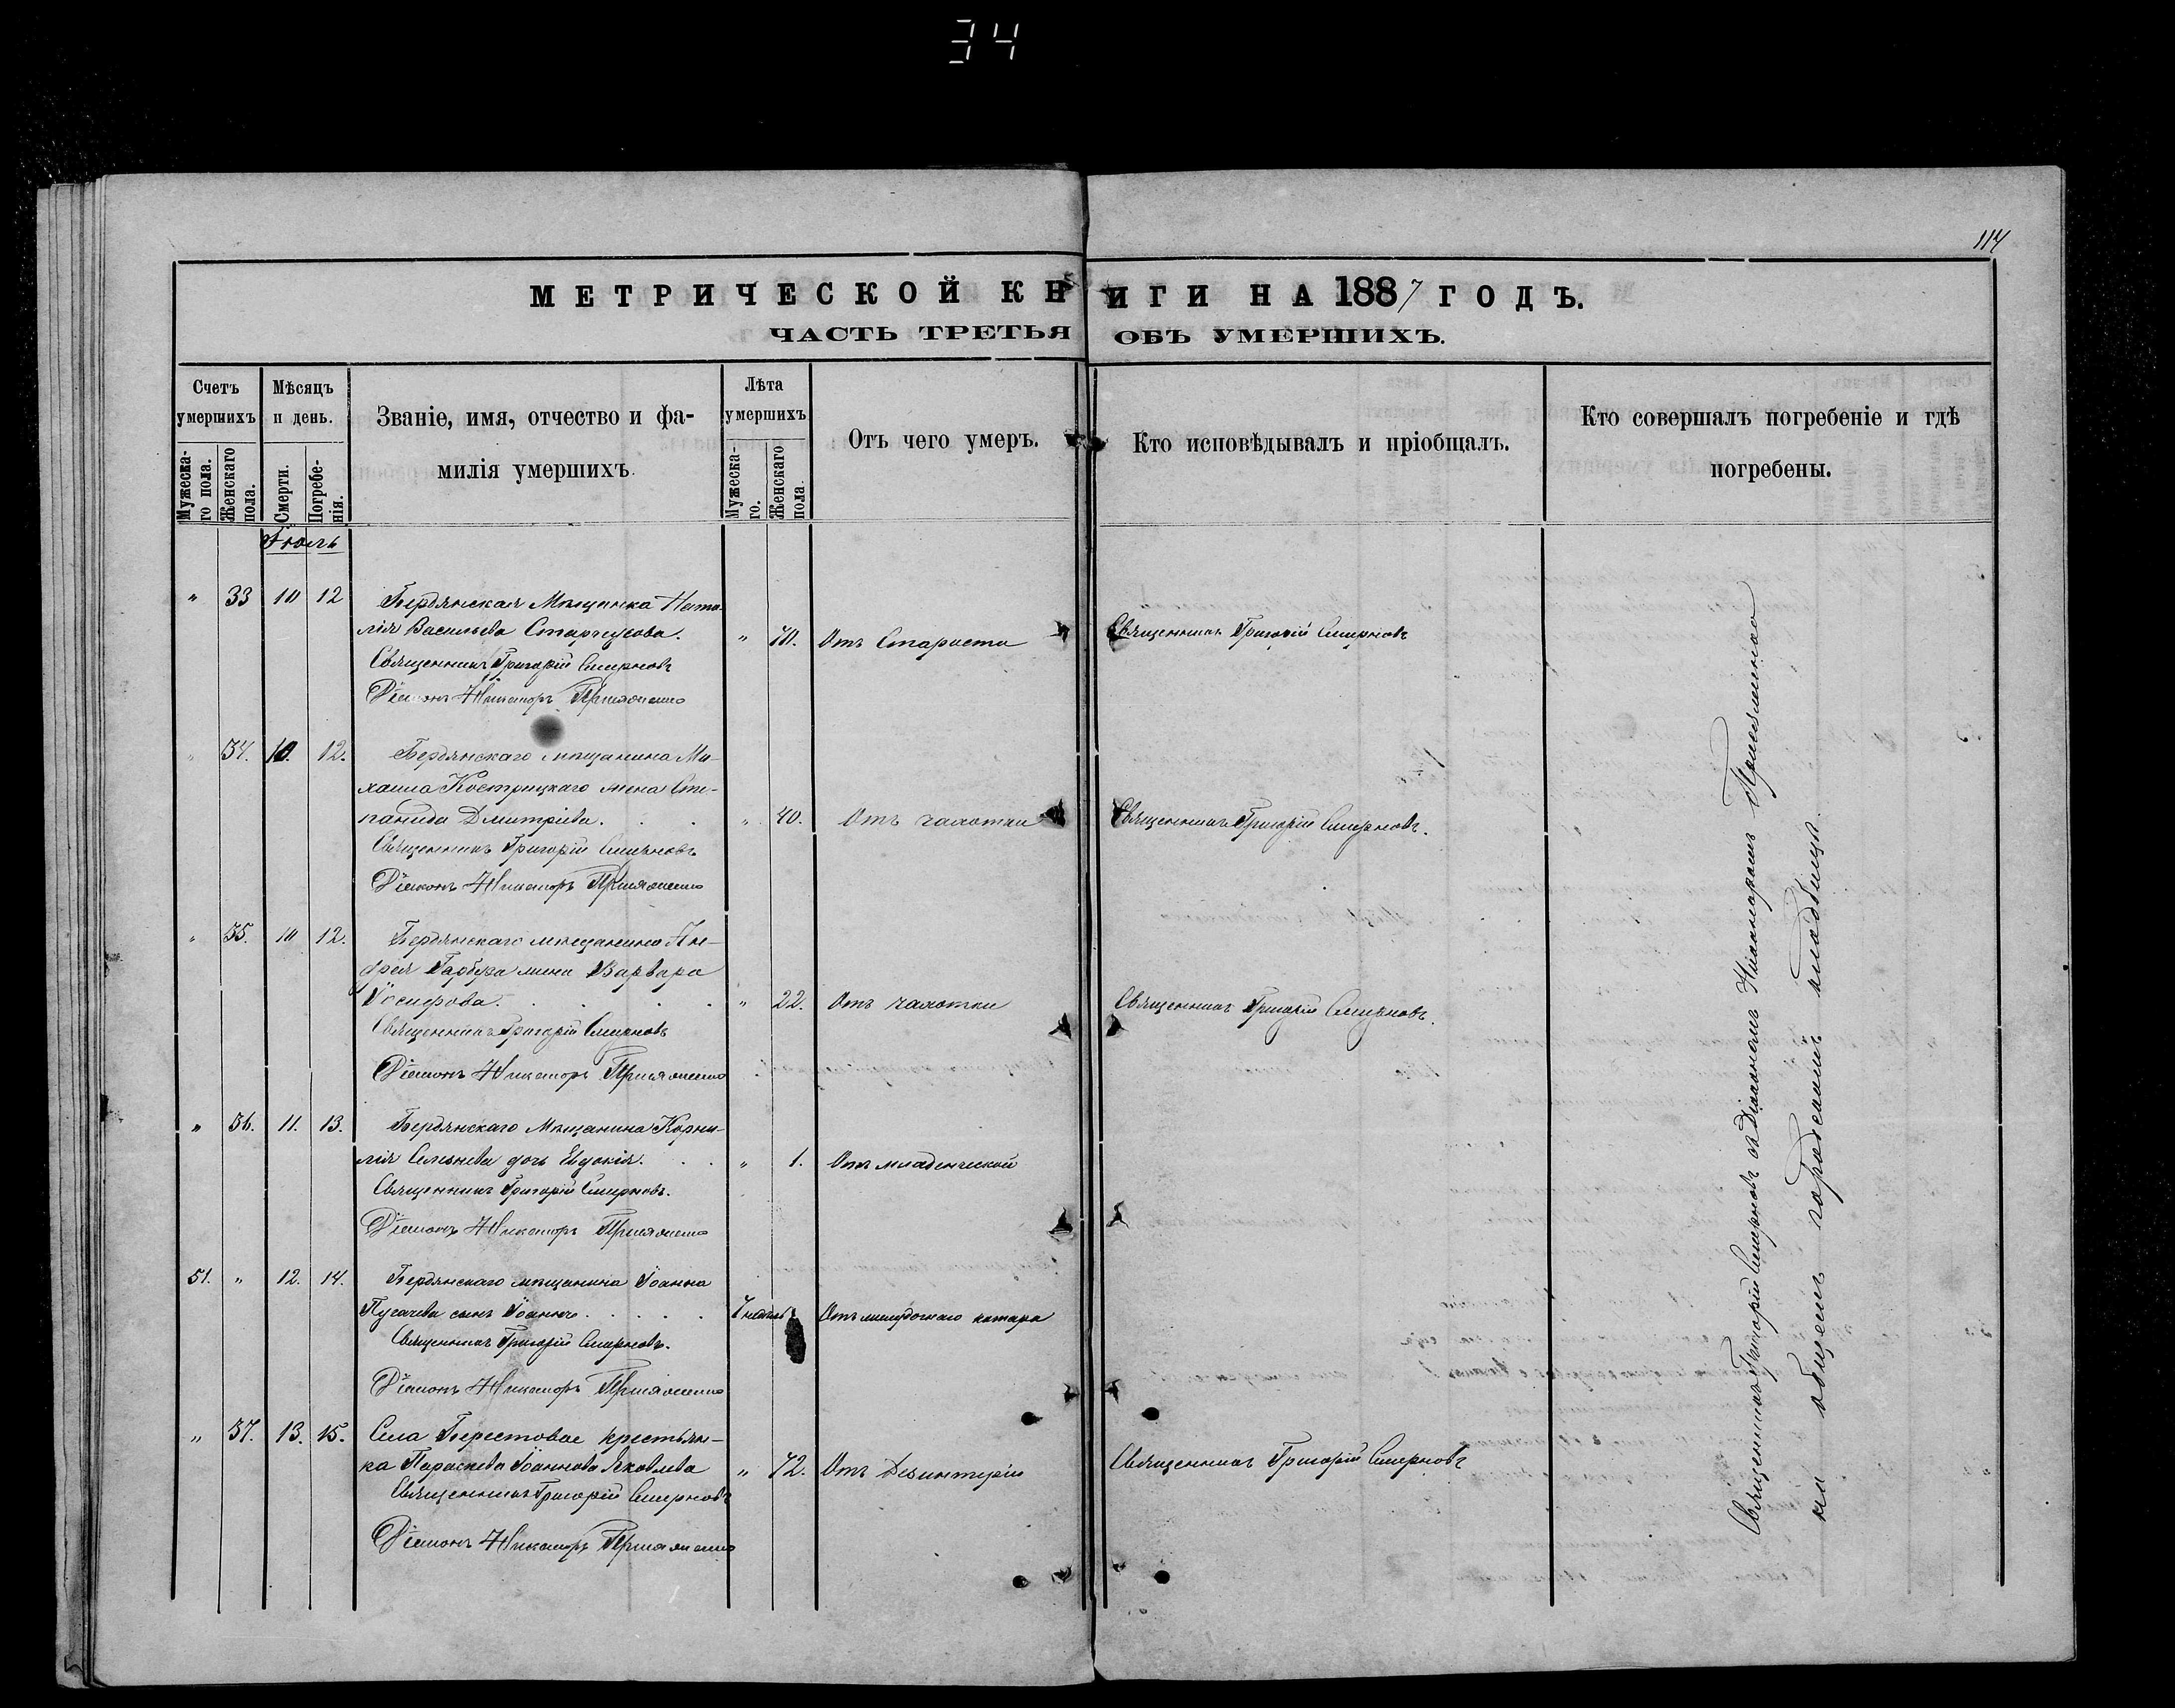 34
114
МЕТРИЧЕСКОЙ КНИГИ НА 1887 ГОДЪ.
ЧАСТЬ ТРЕТЬЯ ОБЪ УМЕРШИХЪ.
Счетъ умершихъ
Мужеска-го пола.
Женскаго пола.
Мѣсяцъ и день.
Смерти.
Погребе-нія.
Званіе, имя, отчество и фа-
милія умершихъ
Лѣта умершихъ
Мужеска-го.
Женскаго пола.
Отъ чего умеръ.
Кто исповѣдывалъ и пріобщалъ.
Кто совершалъ погребеніе и гдѣ
погребены.
Іюль
" 33 10 12 Бердянская Мѣщанка Ната-
лія Васильева . " 70. Отъ Старости Священникъ Григорій Смирновъ
Священникъ Григорій Смирновъ
Діаконъ Никаноръ
" 34. 10. 12. Бердянскаго мѣщанина Ми-
хаила Кострицкаго жена Сте-
панида Дмитріева. " 40. Отъ чахотки Священникъ Григорій Смирновъ.
Священникъ Григорій Смирновъ
Діаконъ Никаноръ
" 35. 10 12. Бердянскаго мѣщанина Ан-
дрея Гарбуза жена Варвара
Іосифова. " 22. Отъ чахотки Священникъ Григорій Смирновъ.
Священникъ Григорій Смирновъ
Діаконъ Никаноръ
" 36. 11. 13. Бердянскаго Мѣщанина Корни-
лія дочь Евдокія. " 1. Отъ младенческой
Священникъ Григорій Смирновъ.
Діаконъ Никаноръ
51. " 12. 14. Бердянскаго мѣщанина Іоанна
Пугачева сынъ Іоаннъ. 7 Отъ желудочнаго катара
Священникъ Григорій Смирновъ.
Діаконъ Никаноръ
" 37. 13. 15. Села Берестовое крестьян-
ка Параскева Іоаннова Яковлева " 72. Отъ Дезинтеріи Священникъ Григорій Смирновъ
Священникъ Григорій Смирновъ
Діаконъ Никаноръ
Священникъ Григорій Смирновъ съ Діакономъ Никаноромъ
на общемъ городскомъ кладбищѣ.